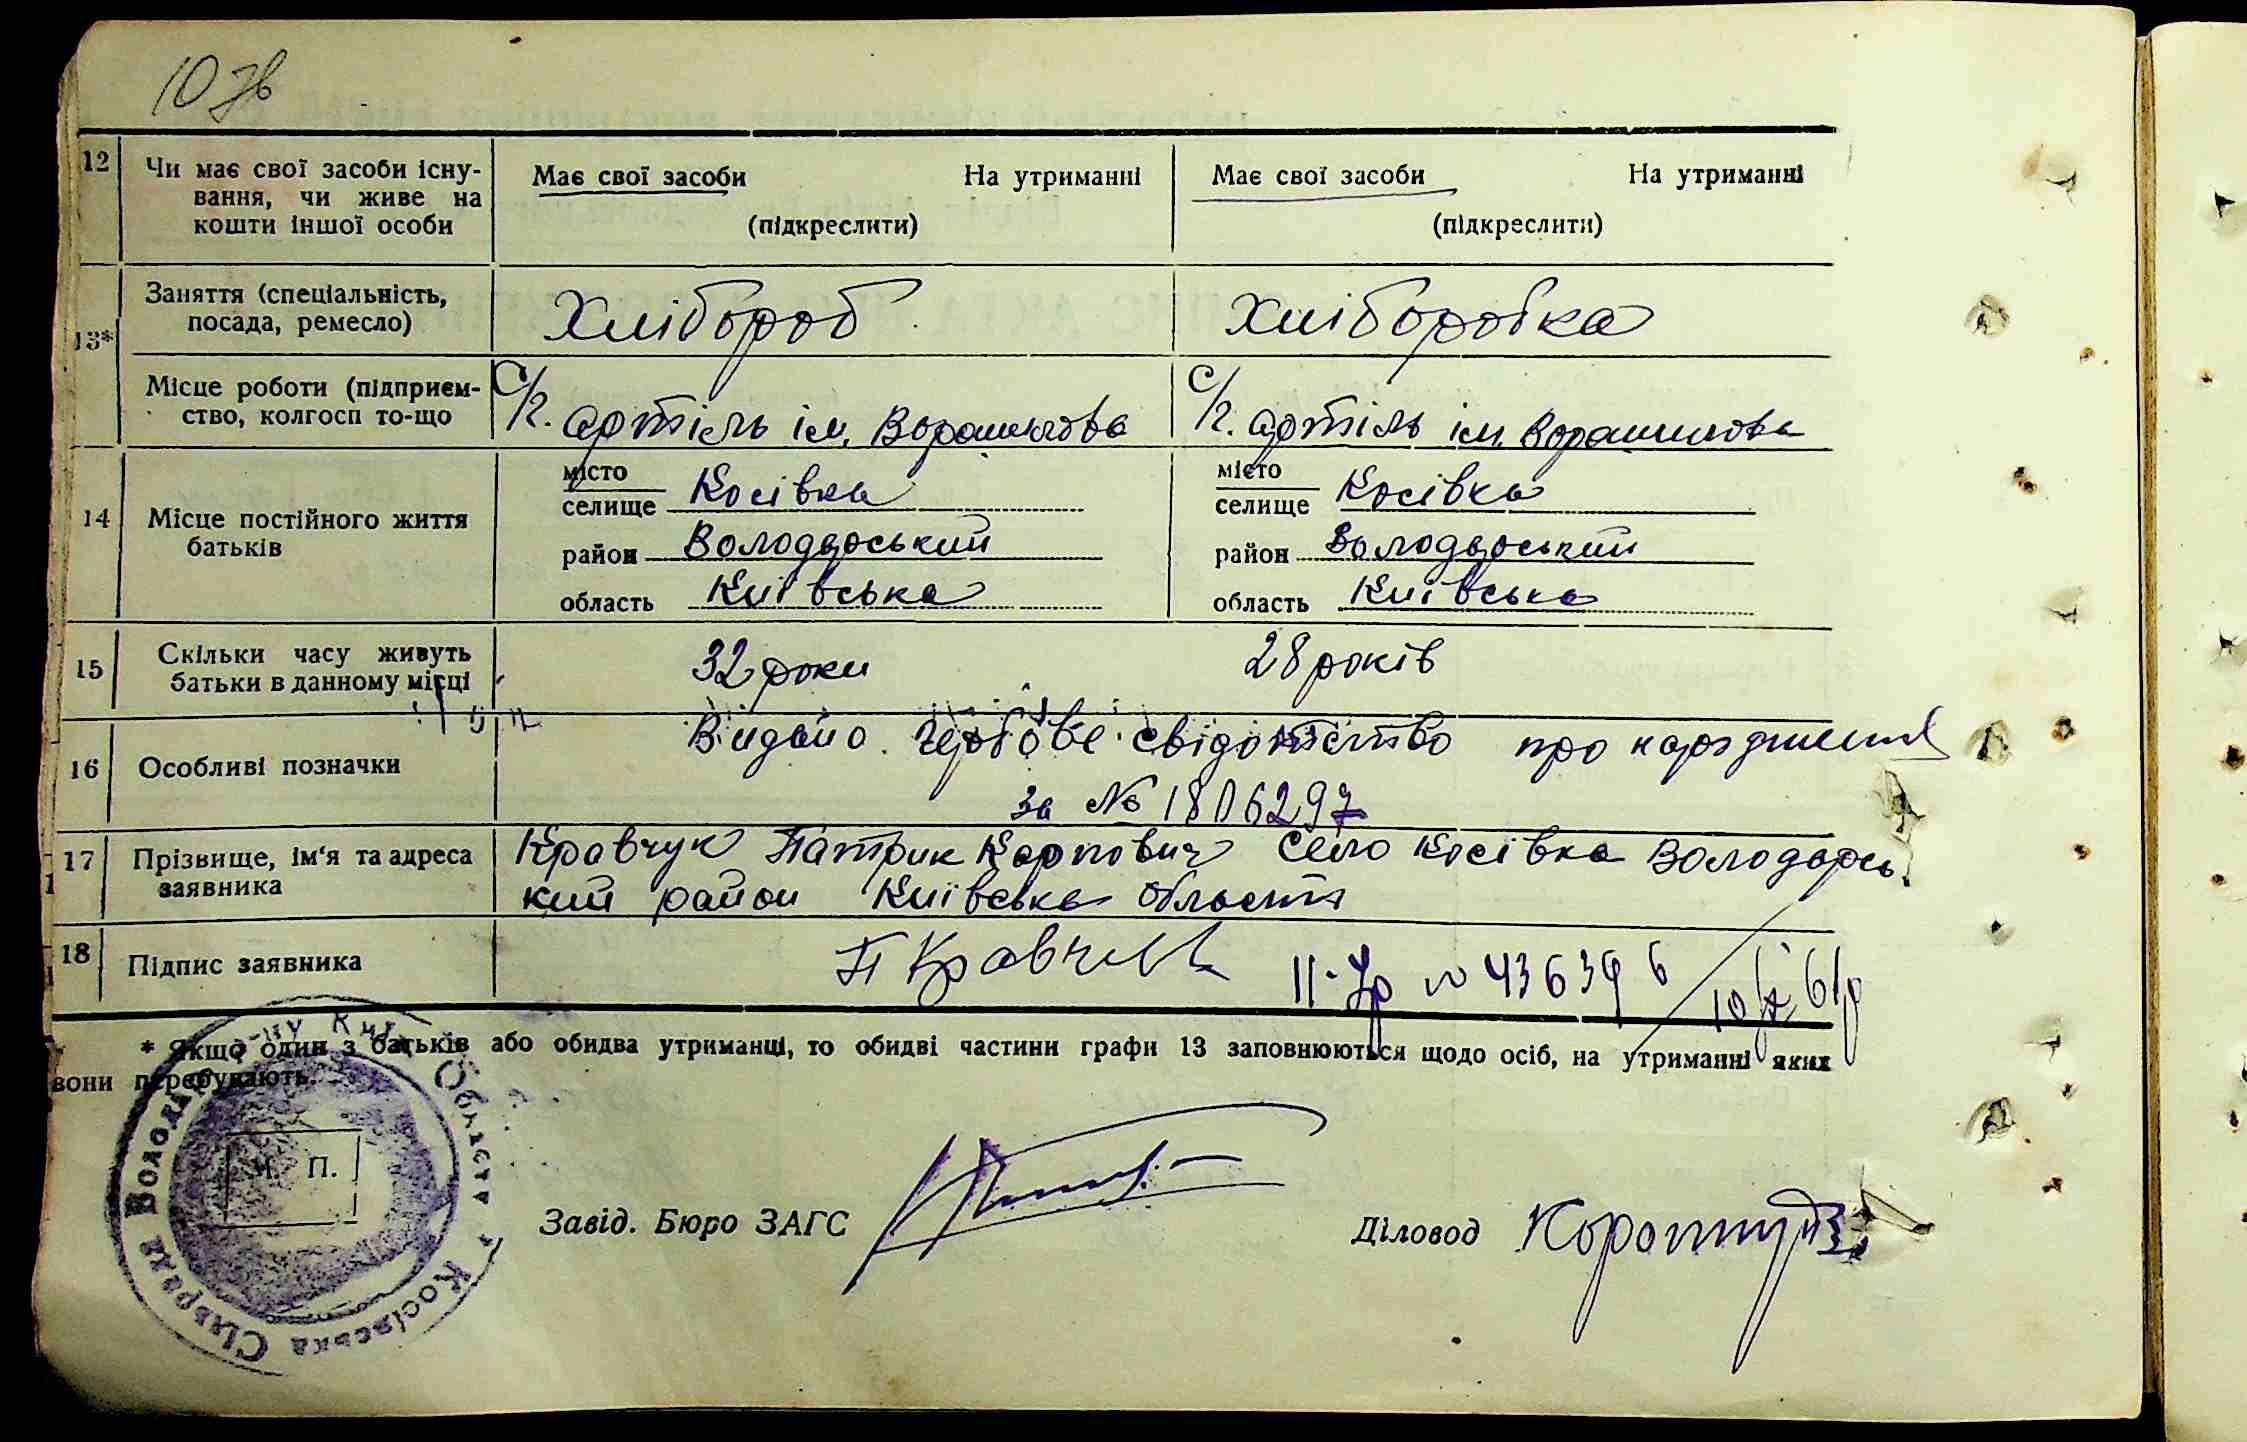 10 зв
12 Чи має свої засоби існу-
вання, чи живе на
кошти іншої особи
Має свої засоби На утриманні
(підкреслити)
Має свої засоби На утриманні
(підкреслити)
13* Заняття (спеціальність,
посада, ремесло)
Хлібороб
Хліборобка
Місце роботи (підприєм-
ство, колгосп то-що
С/г. артіль ім. Ворошилова
С/г. артіль ім. Ворошилова
14 Місце постійного життя
батьків
місто
селище Косівка
район Володарський
область Київська
місто
селище Косівка
район Володарський
область Київська
15 Скільки часу живуть
батьки в данному місці
32 роки
28 років
16 Особливі позначки
Видано гербове свідотство про народження
за № 1806297
17 Прізвище, ім'я та адреса
заявника
Кравчук Патрик Карпович село Косівка Володарсь
кий район Київська область
18 Підпис заявника
П Кравчук
II-Ур № 436396
* Якщо один з батьків або обидва утриманці, то обидві частини графи 13 заповнюються щодо осіб, на утриманні яких
вони перебувають.
Косівська Сільрада Волода
Області
Ч. П.
Завід. Бюро ЗАГС
Діловод